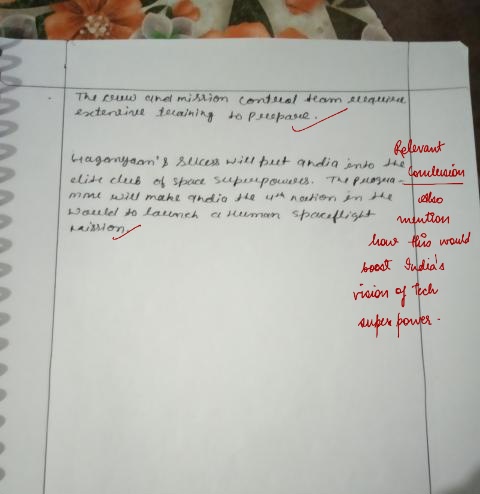 The crew and mission control team required
extensive training to prepare.
Gaganyaan's sucess will put India into the
elite club of space superpowers. The progra-
mme will make India the 4th nation in the
world to launch a human spaceflight
mission.
Relevant
Conclusion
also
mention
how this would
boost India's
vision of tech
super power.